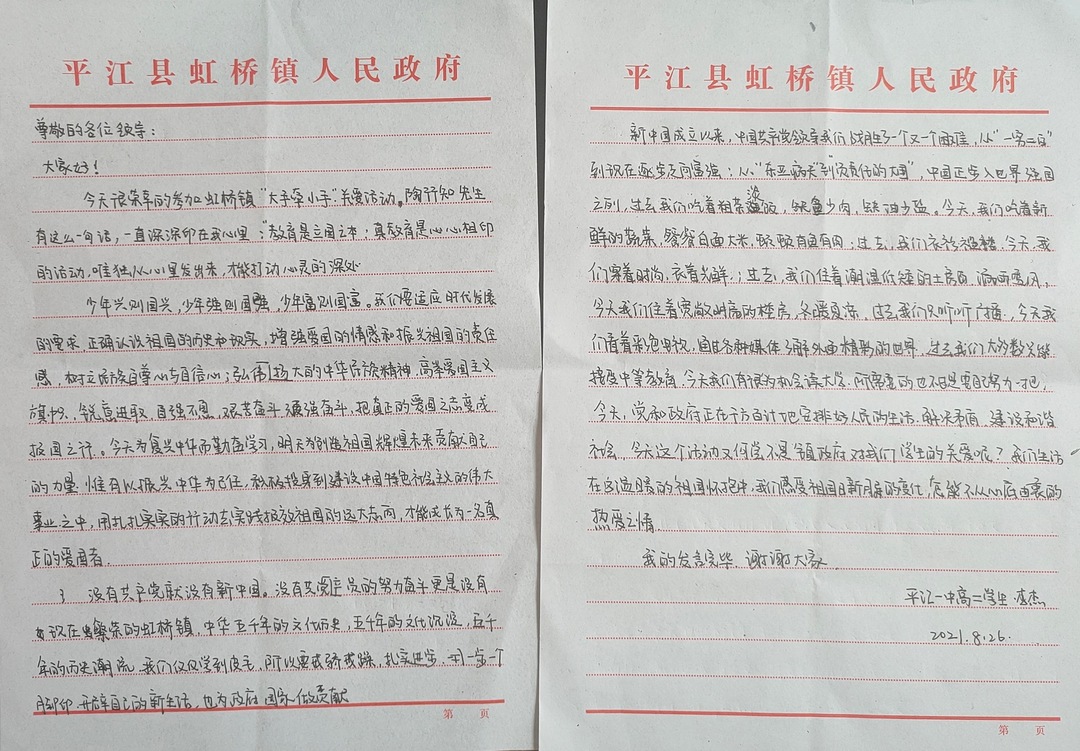 平江县虹桥镇人民政府
尊敬的各位领导：
大家好！
今天很荣幸的参加虹桥镇“大手牵小手”关爱活动。陶行知先生
有这么一句话，一直深深印在我心里：“教育是立国之本；真教育是心心相印
的活动，唯独从心里发出来，才能打动心灵的深处
少年兴则国兴，少年强则国强，少年富则国富。我们要适应时代发展
的要求，正确认识祖国的历史和现实，增强爱国的情感和振兴祖国的责任
感，树立民族自尊心与自信心；弘伟大的中华民族精神，高举爱国主义
旗帜，锐意进取，自强不息，艰苦奋斗，顽强奋斗，把真正的爱国之志变成
报国之行。今天为复兴中华而勤奋学习，明天为创造祖国辉煌未来贡献自己
的力量。惟有以振兴中华为己任，积极投身到建设中国特色社会主义的伟大
事业之中，用扎扎实实的行动去实践报效祖国的远大志向，才能成长为一名真
正的爱国者。
没有共产党就没有新中国。没有共党员的努力奋斗更是没有
现在繁荣的虹桥镇，中华五千年的文化历史，五千年的文化沉淀，五千
年的历史潮流，我们仅仅学到皮毛，所以要戒骄戒躁，扎实进步，一步一个
脚印，开辟自己的新生活，也为政府国家做贡献
第 页
平江县虹桥镇人民政府
新中国成立以来，中国共产党领导我们战胜了一个又一个困难，从“一穷二白”
到现在逐步走向富强；从“东亚病夫到负责任的大国”，中国正步入世界强国
之列，过去我们吃着粗茶淡饭，缺鱼少肉，缺油少盐。今天，我们吃着新
鲜的蔬菜，餐餐白面大米，顿顿有鱼有肉；过去，我们衣衫褴褛，今天，我
们穿着时尚，衣着光鲜；过去，我们住着潮湿低矮的土房，漏雨透风，
今天我们住着宽敞明亮的楼房，冬暖夏凉，过去我们只听听广播，今天我
们看着彩色电视，各种媒体了解外面精彩的世界，过去我们大多数只能
接受中等教育，今天我们有很多机会读大学，所需要的也不过是要自己努力一把，
今天，党和政府正在千方百计地安排好人民的生活，解决矛盾，建设和谐
社会，今天这个活动又何尝不是镇政府对我们学生的关爱呢？我们生活
在这温暖的祖国怀抱中，我们感受祖国日新月异的变化，怎能不从心底由衷的
热爱之情
我的发言完毕，谢谢大家
平江一中高二学生 李杰
2021.8.26.
第 页